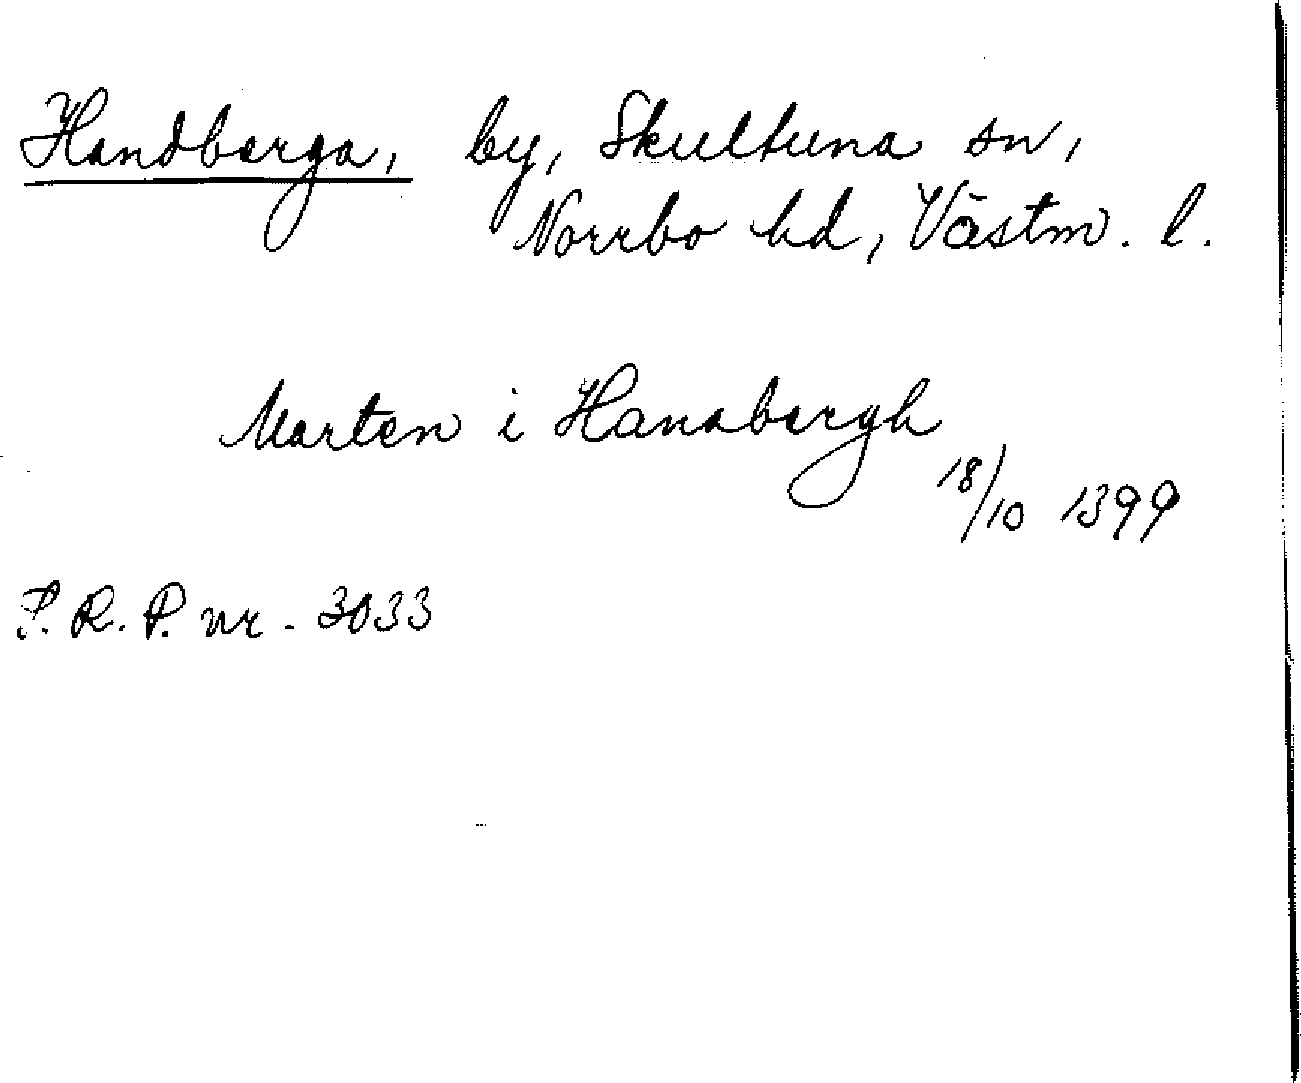 Handberga, by, Skultuna sn,
Norrbo hd, Västm. l.
Marten i Hanabergh
18/10 1399
P. R. P. nr. 3033